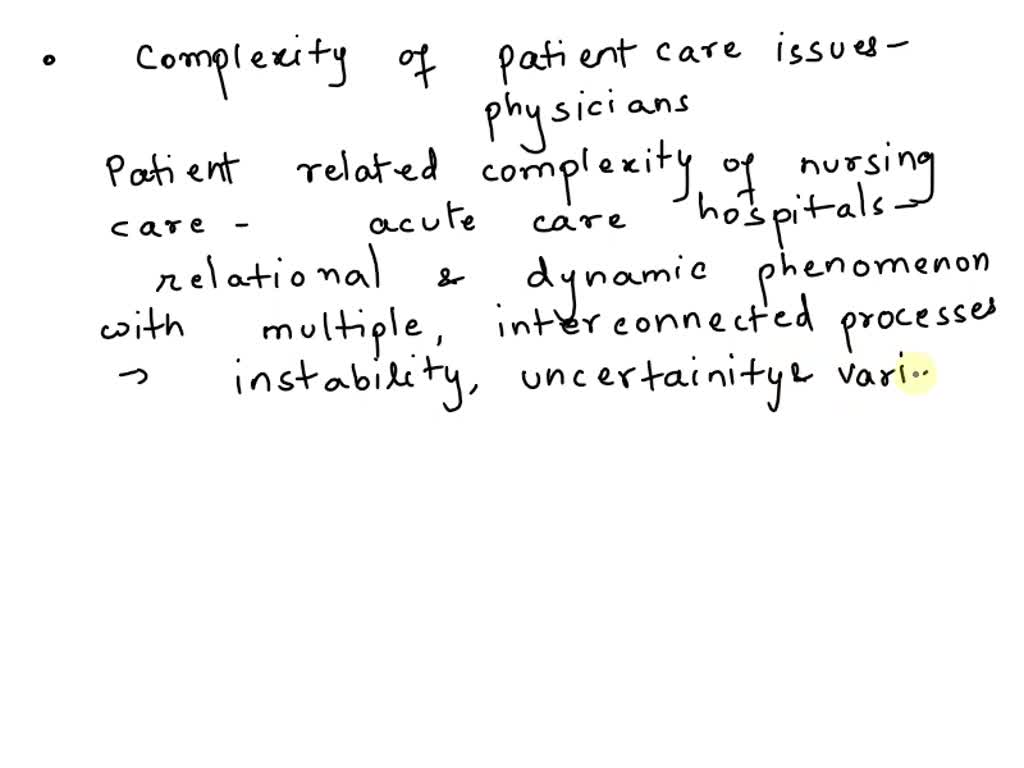 • Complexity of patient care issues -
physicians
Patient related complexity of nursing
care - acute care hospitals →
relational & dynamic phenomenon
with multiple, interconnected processes
→ instability, uncertainity & vari